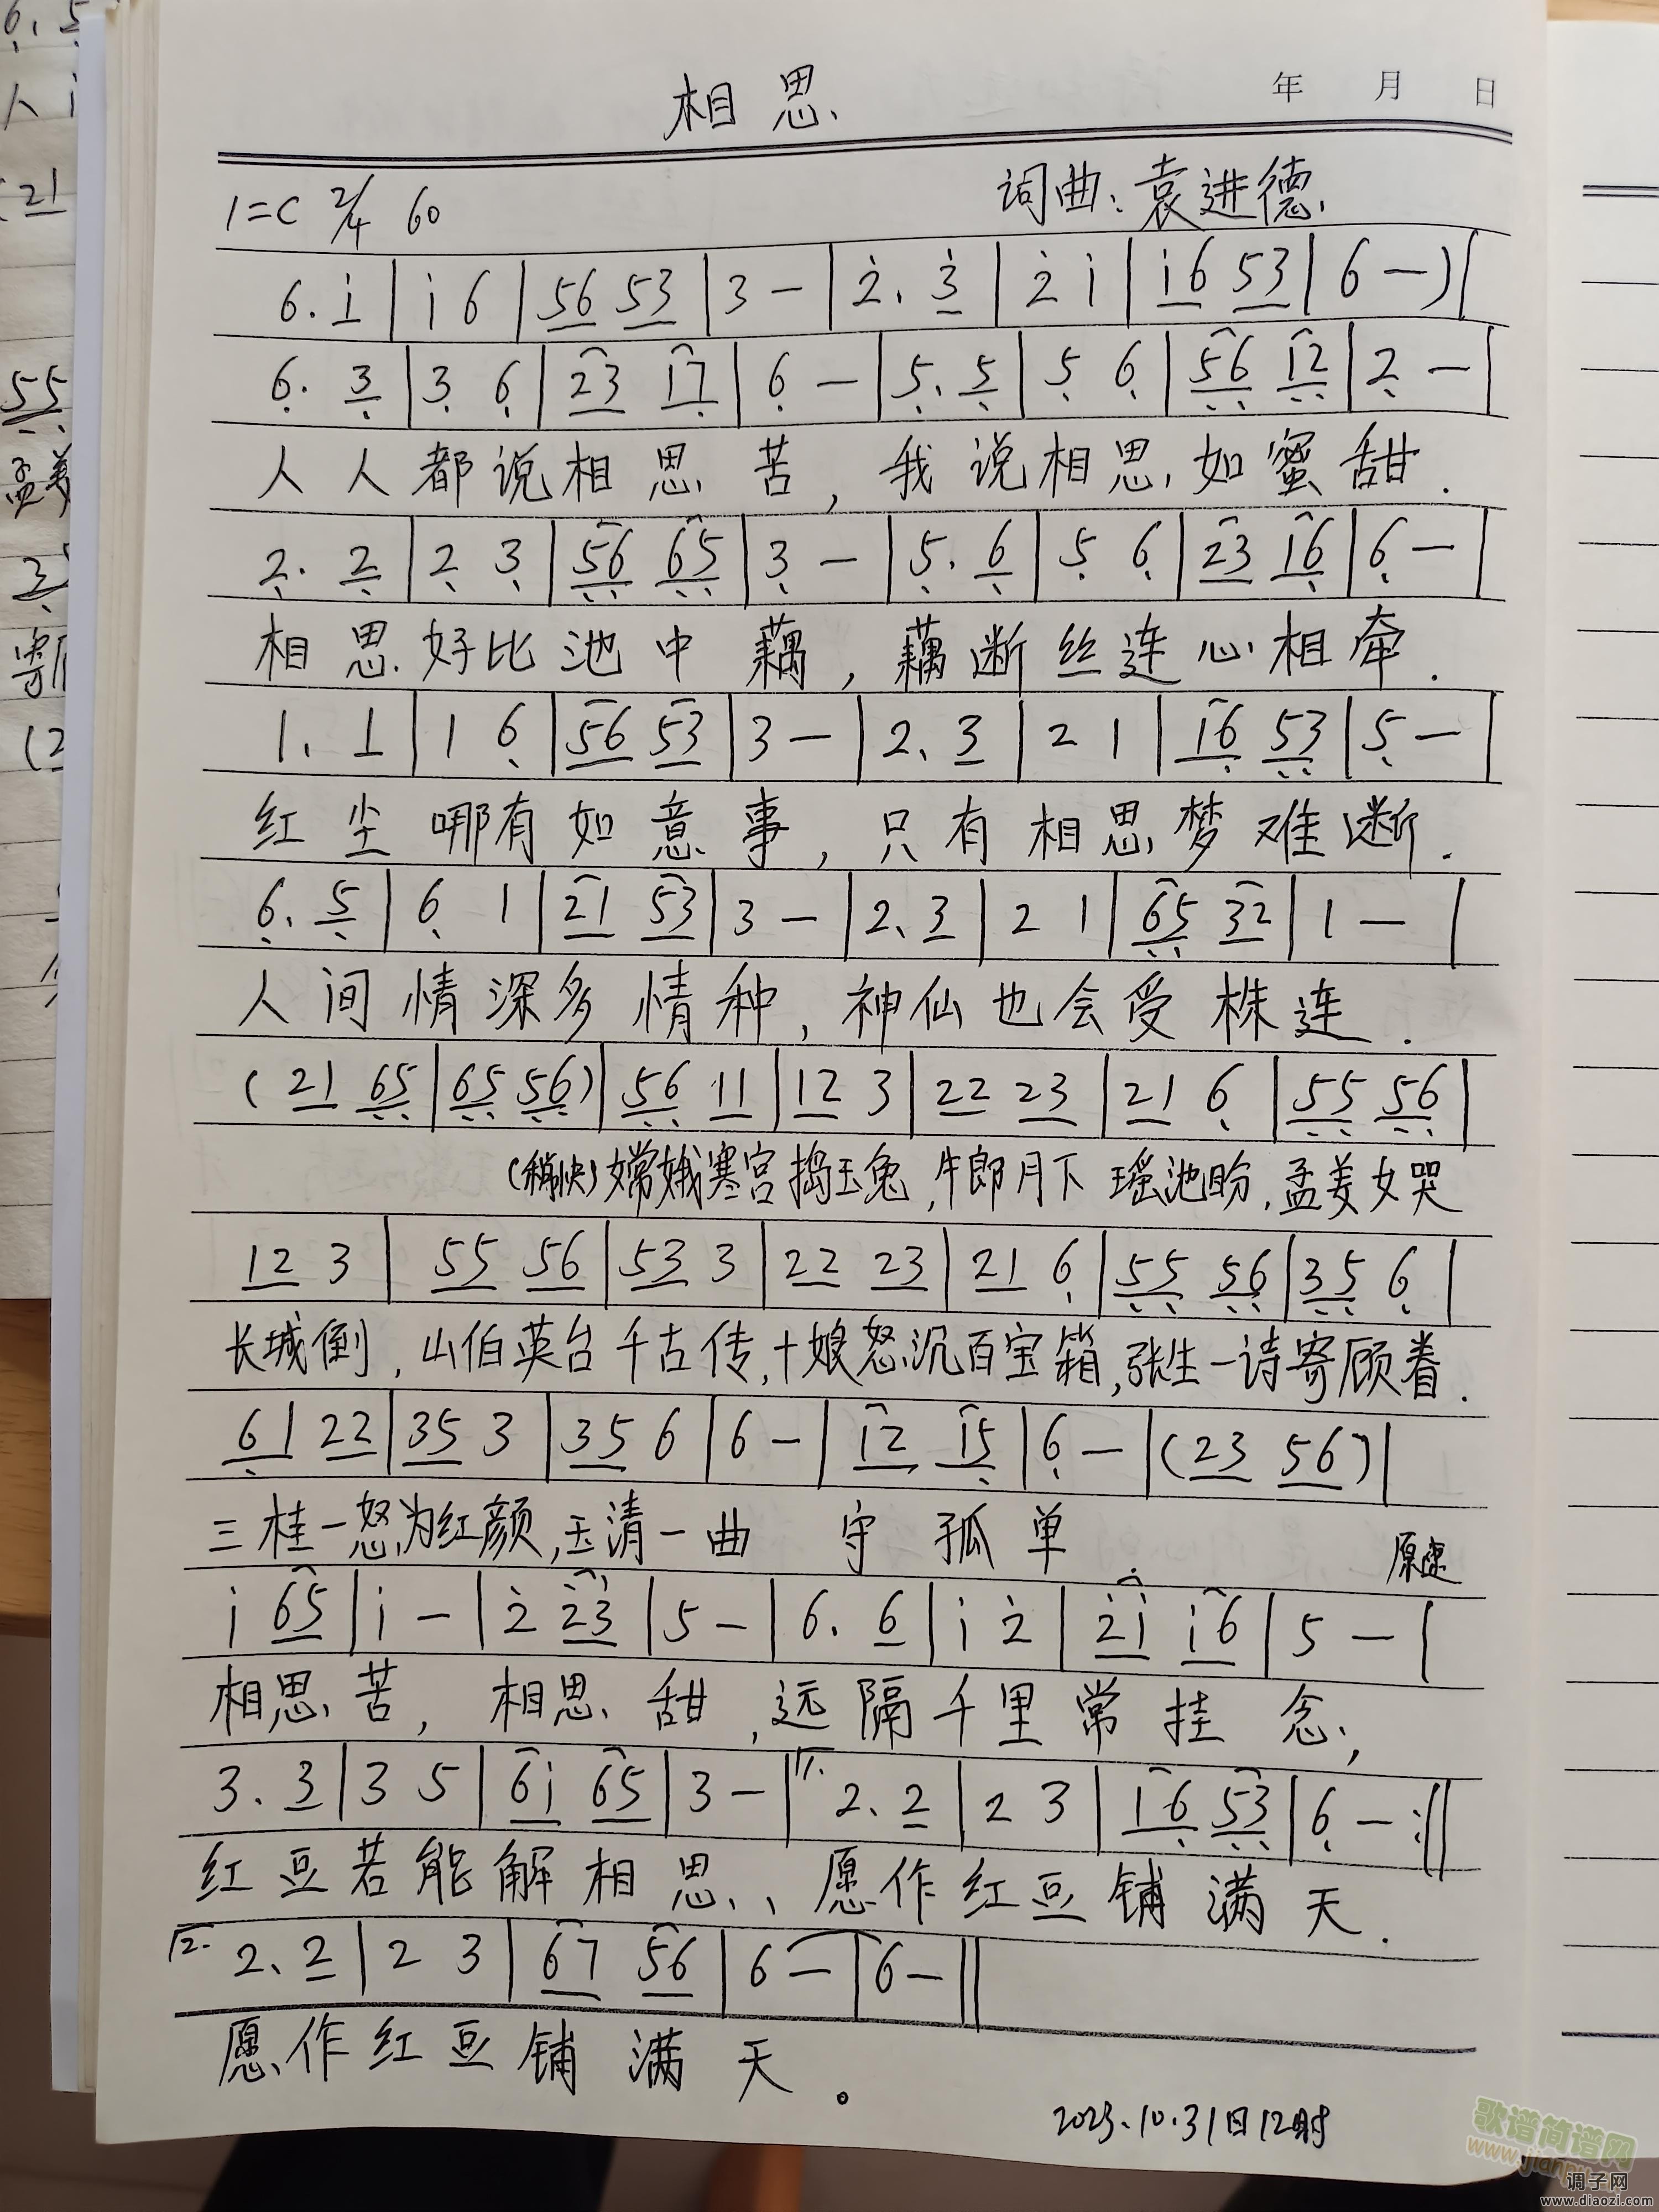 相思
年 月 日
1=C 2/4 60 词曲:袁进德
6. i | i 6 | 56 53 | 3 — | 2. 3 | 2 i | i6 53 | 6 —) |
6. 3 | 3 6 | 23 17 | 6 — | 5. 5 | 5 6 | 56 12 | 2 — |
人人都说相思苦,我说相思如蜜甜.
2. 2 | 2 3 | 56 65 | 3 — | 5. 6 | 5 6 | 23 16 | 6 — |
相思好比池中藕,藕断丝连心相牵.
1. 1 | 1 6 | 56 53 | 3 — | 2. 3 | 2 1 | 16 53 | 5 — |
红尘哪有如意事,只有相思梦难断.
6. 5 | 6 1 | 21 53 | 3 — | 2. 3 | 2 1 | 65 32 | 1 — |
人间情深多情种,神仙也会受株连.
(21 65 | 65 56) | 56 11 | 12 3 | 22 23 | 21 6 | 55 56 |
(稍快)嫦娥寒宫捣玉兔,牛郎月下瑶池盼,孟姜女哭
12 3 | 55 56 | 53 3 | 22 23 | 21 6 | 55 56 | 35 6 |
长城倒,山伯英台千古传,十娘怒沉百宝箱,张生一诗寄顾眷.
61 22 | 35 3 | 35 6 | 6 — | 12 15 | 6 — | (23 56) |
三桂一怒为红颜,玉清一曲 守孤单
原速
i 65 | i — | 2 23 | 5 — | 6. 6 | i 2 | 2i i6 | 5 — |
相思苦,相思甜,远隔千里常挂念,
3. 3 | 3 5 | 6i 65 | 3 — | 1. 2. 2 | 2 3 | 16 53 | 6 — :||
红豆若能解相思、愿作红豆铺满天.
2. 2. 2 | 2 3 | 67 56 | 6 — | 6 — ||
愿作红豆铺满天。
2023.10.31日12时
歌谱简谱网
调子网
www.diaozi.com